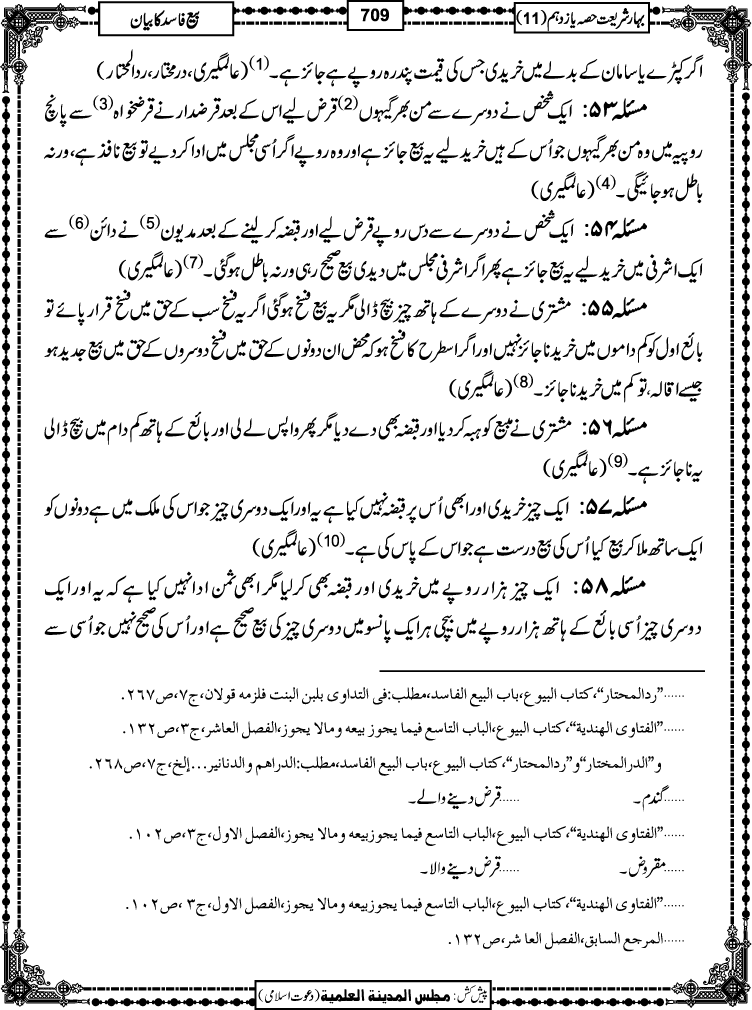 بہارِ شریعت حصہ یازدہم (11)
709
بیع فاسد کا بیان
اگر کپڑے یا سامان کے بدلے میں خریدی جس کی قیمت پندرہ روپے ہے جائز ہے۔(1) (عالمگیری، درمختار، ردالمحتار)
مسئلہ ۵۳: ایک شخص نے دوسرے سے من بھر گیہوں(2) قرض لیے اس کے بعد قرضدار نے قرضخواہ(3) سے پانچ
روپیہ میں وہ من بھر گیہوں جو اُس کے ہیں خرید لیے یہ بیع جائز ہے اور وہ روپے اگر اُسی مجلس میں ادا کر دیے تو بیع نافذ ہے، ورنہ
باطل ہو جائیگی۔(4) (عالمگیری)
مسئلہ ۵۴: ایک شخص نے دوسرے سے دس روپے قرض لیے اور قبضہ کر لینے کے بعد مدیون(5) نے دائن(6) سے
ایک اشرفی میں خرید لیے یہ بیع جائز ہے پھر اگر اشرفی مجلس میں دیدی بیع صحیح رہی ورنہ باطل ہوگئی۔(7) (عالمگیری)
مسئلہ ۵۵: مشتری نے دوسرے کے ہاتھ چیز بیچ ڈالی مگر یہ بیع فسخ ہوگئی اگر یہ فسخ سب کے حق میں فسخ قرار پائے تو
بائع اول کو کم داموں میں خریدنا جائز نہیں اور اگر اسطرح کا فسخ ہو کہ محض ان دونوں کے حق میں فسخ دوسروں کے حق میں بیع جدید ہو
جیسے اقالہ، تو کم میں خریدنا جائز۔(8) (عالمگیری)
مسئلہ ۵۶: مشتری نے مبیع کو ہبہ کر دیا اور قبضہ بھی دے دیا مگر پھر واپس لے لی اور بائع کے ہاتھ کم دام میں بیچ ڈالی
یہ ناجائز ہے۔(9) (عالمگیری)
مسئلہ ۵۷: ایک چیز خریدی اور ابھی اُس پر قبضہ نہیں کیا ہے یہ اور ایک دوسری چیز جو اس کی ملک میں ہے دونوں کو
ایک ساتھ ملا کر بیع کیا اُس کی بیع درست ہے جو اس کے پاس کی ہے۔(10) (عالمگیری)
مسئلہ ۵۸: ایک چیز ہزار روپے میں خریدی اور قبضہ بھی کر لیا مگر ابھی ثمن ادا نہیں کیا ہے کہ یہ اور ایک
دوسری چیز اُسی بائع کے ہاتھ ہزار روپے میں بیچی ہر ایک پانسو میں دوسری چیز کی بیع صحیح ہے اور اُس کی صحیح نہیں جو اُسی سے
......"ردالمحتار"،کتاب البیوع،باب البیع الفاسد،مطلب:فی التداوی بلبن البنت فلزمہ قولان،ج۷،ص۲۶۷.
......"الفتاوی الھندیة"،کتاب البیوع،الباب التاسع فیما یجوز بیعہ ومالا یجوز،الفصل العاشر،ج۳،ص۱۳۲.
و"الدرالمختار"و"ردالمحتار"،کتاب البیوع،باب البیع الفاسد،مطلب:الدراھم والدنانیر...إلخ،ج۷،ص۲۶۸.
......گندم۔ ......قرض دینے والے۔
......"الفتاوی الھندیة"،کتاب البیوع،الباب التاسع فیما یجوزبیعہ ومالا یجوز،الفصل الاول،ج۳،ص۱۰۲.
......مقروض۔ ......قرض دینے والا۔
......"الفتاوی الھندیة"،کتاب البیوع،الباب التاسع فیما یجوزبیعہ ومالا یجوز،الفصل الاول،ج۳،ص۱۰۲.
......المرجع السابق،الفصل العاشر،ص۱۳۲.
پیش کش: مجلس المدینة العلمیة (دعوتِ اسلامی)